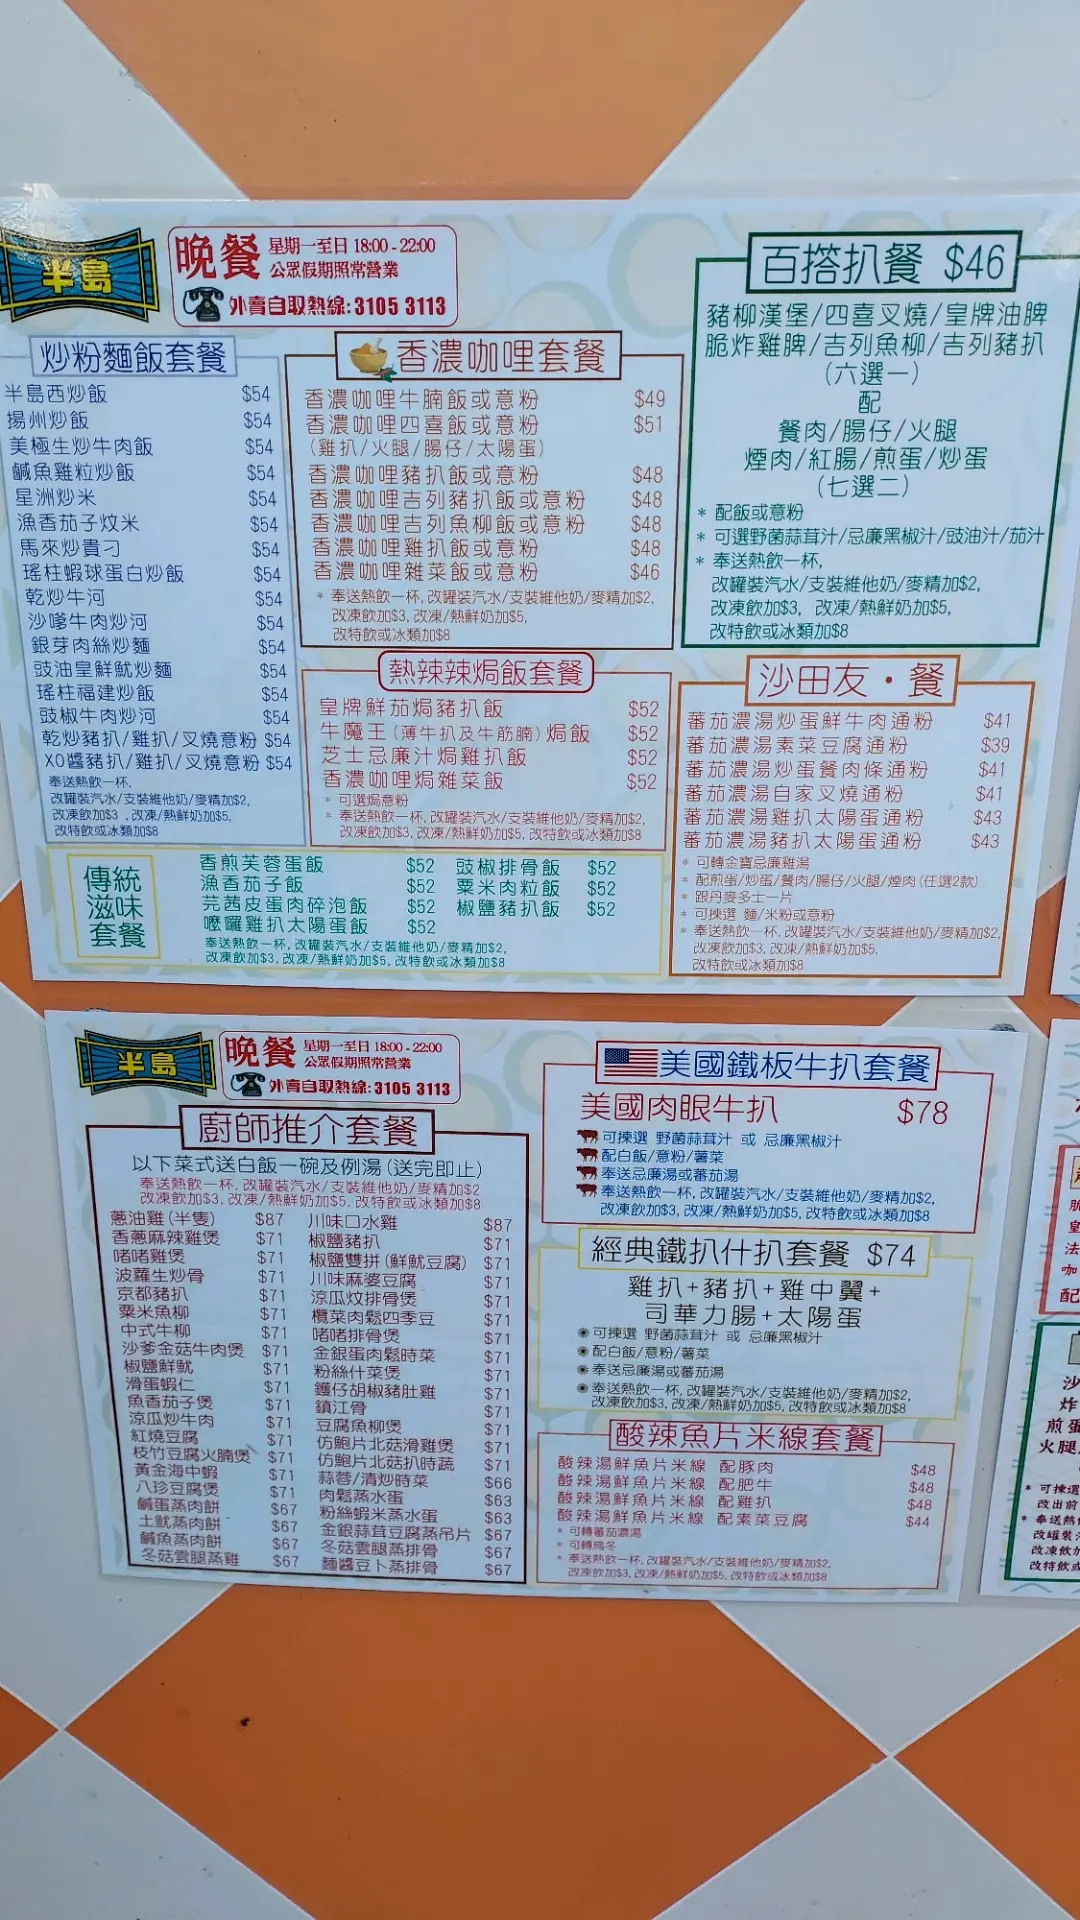 半島
晚餐 星期一至日 18:00 - 22:00
公眾假期照常營業
外賣自取熱線:3105 3113
炒粉麵飯套餐
半島西炒飯 $54
揚州炒飯 $54
美極生炒牛肉飯 $54
鹹魚雞粒炒飯 $54
星洲炒米 $54
漁香茄子炆米 $54
馬來炒貴刁 $54
瑤柱蝦球蛋白炒飯 $54
乾炒牛河 $54
沙嗲牛肉炒河 $54
銀芽肉絲炒麵 $54
豉油皇鮮魷炒麵 $54
瑤柱福建炒飯 $54
豉椒牛肉炒河 $54
乾炒豬扒/雞扒/叉燒意粉 $54
XO醬豬扒/雞扒/叉燒意粉 $54
奉送熱飲一杯,
改罐裝汽水/支裝維他奶/麥精加$2,
改凍飲加$3 ,改凍/熱鮮奶加$5,
改特飲或冰類加$8
香濃咖哩套餐
香濃咖哩牛腩飯或意粉 $49
香濃咖哩四喜飯或意粉 $51
(雞扒/火腿/腸仔/太陽蛋)
香濃咖哩豬扒飯或意粉 $48
香濃咖哩吉列豬扒飯或意粉 $48
香濃咖哩吉列魚柳飯或意粉 $48
香濃咖哩雞扒飯或意粉 $48
香濃咖哩雜菜飯或意粉 $46
* 奉送熱飲一杯,改罐裝汽水/支裝維他奶/麥精加$2,
改凍飲加$3,改凍/熱鮮奶加$5,
改特飲或冰類加$8
熱辣辣焗飯套餐
皇牌鮮茄焗豬扒飯 $52
牛魔王(薄牛扒及牛筋腩)焗飯 $52
芝士忌廉汁焗雞扒飯 $52
香濃咖哩焗雜菜飯 $52
* 可選焗意粉
* 奉送熱飲一杯,改罐裝汽水/支裝維他奶/麥精加$2,
改凍飲加$3,改凍/熱鮮奶加$5,改特飲或冰類加$8
百搭扒餐 $46
豬柳漢堡/四喜叉燒/皇牌油脾
脆炸雞脾/吉列魚柳/吉列豬扒
(六選一)
配
餐肉/腸仔/火腿
煙肉/紅腸/煎蛋/炒蛋
(七選二)
* 配飯或意粉
* 可選野菌蒜茸汁/忌廉黑椒汁/豉油汁/茄汁
* 奉送熱飲一杯,
改罐裝汽水/支裝維他奶/麥精加$2,
改凍飲加$3, 改凍/熱鮮奶加$5,
改特飲或冰類加$8
沙田友・餐
蕃茄濃湯炒蛋鮮牛肉通粉 $41
蕃茄濃湯素菜豆腐通粉 $39
蕃茄濃湯炒蛋餐肉條通粉 $41
蕃茄濃湯自家叉燒通粉 $41
蕃茄濃湯雞扒太陽蛋通粉 $43
蕃茄濃湯豬扒太陽蛋通粉 $43
* 可轉金寶忌廉雞湯
* 配煎蛋/炒蛋/餐肉/腸仔/火腿/煙肉(任選2款)
* 跟丹麥多士一片
* 可揀選 麵/米粉或意粉
* 奉送熱飲一杯,改罐裝汽水/支裝維他奶/麥精加$2,
改凍飲加$3,改凍/熱鮮奶加$5,
改特飲或冰類加$8
傳統
滋味
套餐
香煎芙蓉蛋飯 $52 豉椒排骨飯 $52
漁香茄子飯 $52 粟米肉粒飯 $52
芫茜皮蛋肉碎泡飯 $52 椒鹽豬扒飯 $52
嚤囉雞扒太陽蛋飯 $52
奉送熱飲一杯,改罐裝汽水/支裝維他奶/麥精加$2,
改凍飲加$3,改凍/熱鮮奶加$5,改特飲或冰類加$8
半島
晚餐 星期一至日 18:00 - 22:00
公眾假期照常營業
外賣自取熱線:3105 3113
廚師推介套餐
以下菜式送白飯一碗及例湯(送完即止)
奉送熱飲一杯,改罐裝汽水/支裝維他奶/麥精加$2
改凍飲加$3,改凍/熱鮮奶加$5,改特飲或冰類加$8
蔥油雞(半隻) $87 川味口水雞 $87
香蔥麻辣雞煲 $71 椒鹽豬扒 $71
啫啫雞煲 $71 椒鹽雙拼(鮮魷豆腐) $71
波蘿生炒骨 $71 川味麻婆豆腐 $71
京都豬扒 $71 涼瓜炆排骨煲 $71
粟米魚柳 $71 欖菜肉鬆四季豆 $71
中式牛柳 $71 啫啫排骨煲 $71
沙爹金菇牛肉煲 $71 金銀蛋肉鬆時菜 $71
椒鹽鮮魷 $71 粉絲什菜煲 $71
滑蛋蝦仁 $71 鑊仔胡椒豬肚雞 $71
魚香茄子煲 $71 鎮江骨 $71
涼瓜炒牛肉 $71 豆腐魚柳煲 $71
紅燒豆腐 $71 仿鮑片北菇滑雞煲 $71
枝竹豆腐火腩煲 $71 仿鮑片北菇扒時蔬 $71
黃金海中蝦 $71 蒜蓉/清炒時菜 $66
八珍豆腐煲 $71 肉鬆蒸水蛋 $63
鹹蛋蒸肉餅 $67 粉絲蝦米蒸水蛋 $63
土魷蒸肉餅 $67 金銀蒜茸豆腐蒸吊片 $67
鹹魚蒸肉餅 $67 冬菇雲腿蒸排骨 $67
冬菇雲腿蒸雞 $67 麵醬豆卜蒸排骨 $67
美國鐵板牛扒套餐
美國肉眼牛扒 $78
可揀選 野菌蒜茸汁 或 忌廉黑椒汁
配白飯/意粉/薯菜
奉送忌廉湯或蕃茄湯
奉送熱飲一杯,改罐裝汽水/支裝維他奶/麥精加$2,
改凍飲加$3,改凍/熱鮮奶加$5,改特飲或冰類加$8
經典鐵扒什扒套餐 $74
雞扒+豬扒+雞中翼+
司華力腸+太陽蛋
可揀選 野菌蒜茸汁 或 忌廉黑椒汁
配白飯/意粉/薯菜
奉送忌廉湯或蕃茄湯
奉送熱飲一杯,改罐裝汽水/支裝維他奶/麥精加$2,
改凍飲加$3,改凍/熱鮮奶加$5,改特飲或冰類加$8
酸辣魚片米線套餐
酸辣湯鮮魚片米線 配豚肉 $48
酸辣湯鮮魚片米線 配肥牛 $48
酸辣湯鮮魚片米線 配雞扒 $48
酸辣湯鮮魚片米線 配素菜豆腐 $44
* 可轉蕃茄濃湯
* 可轉烏冬
* 奉送熱飲一杯,改罐裝汽水/支裝維他奶/麥精加$2,
改凍飲加$3,改凍/熱鮮奶加$5,改特飲或冰類加$8
皇
法
咖
配
沙
炸
煎蛋
火腿
* 可揀選
改出前
* 奉送熱
改罐裝
改凍飲
改特飲或